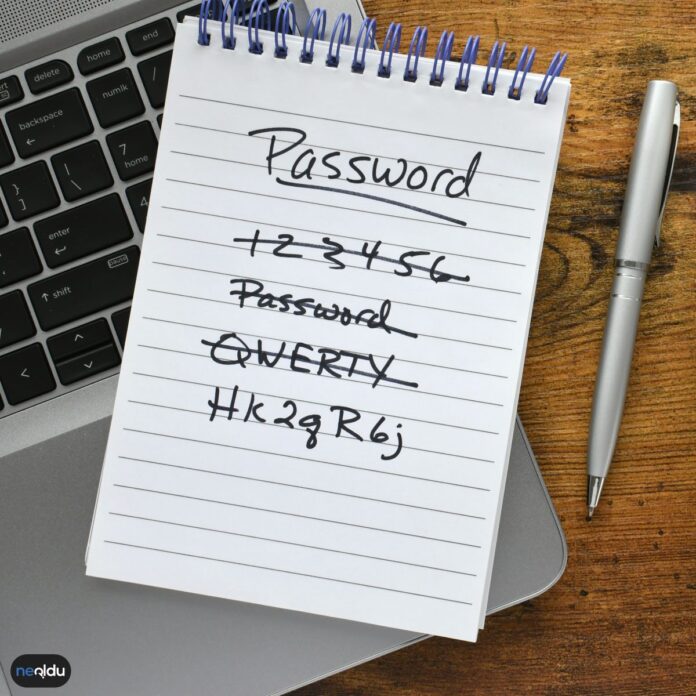 end
home
delete
numlk
backspace
7
home
}
]
|
\
enter
pause
shift
<
Password
123456
Password
QWERTY
Hk2gR6j
neoldu